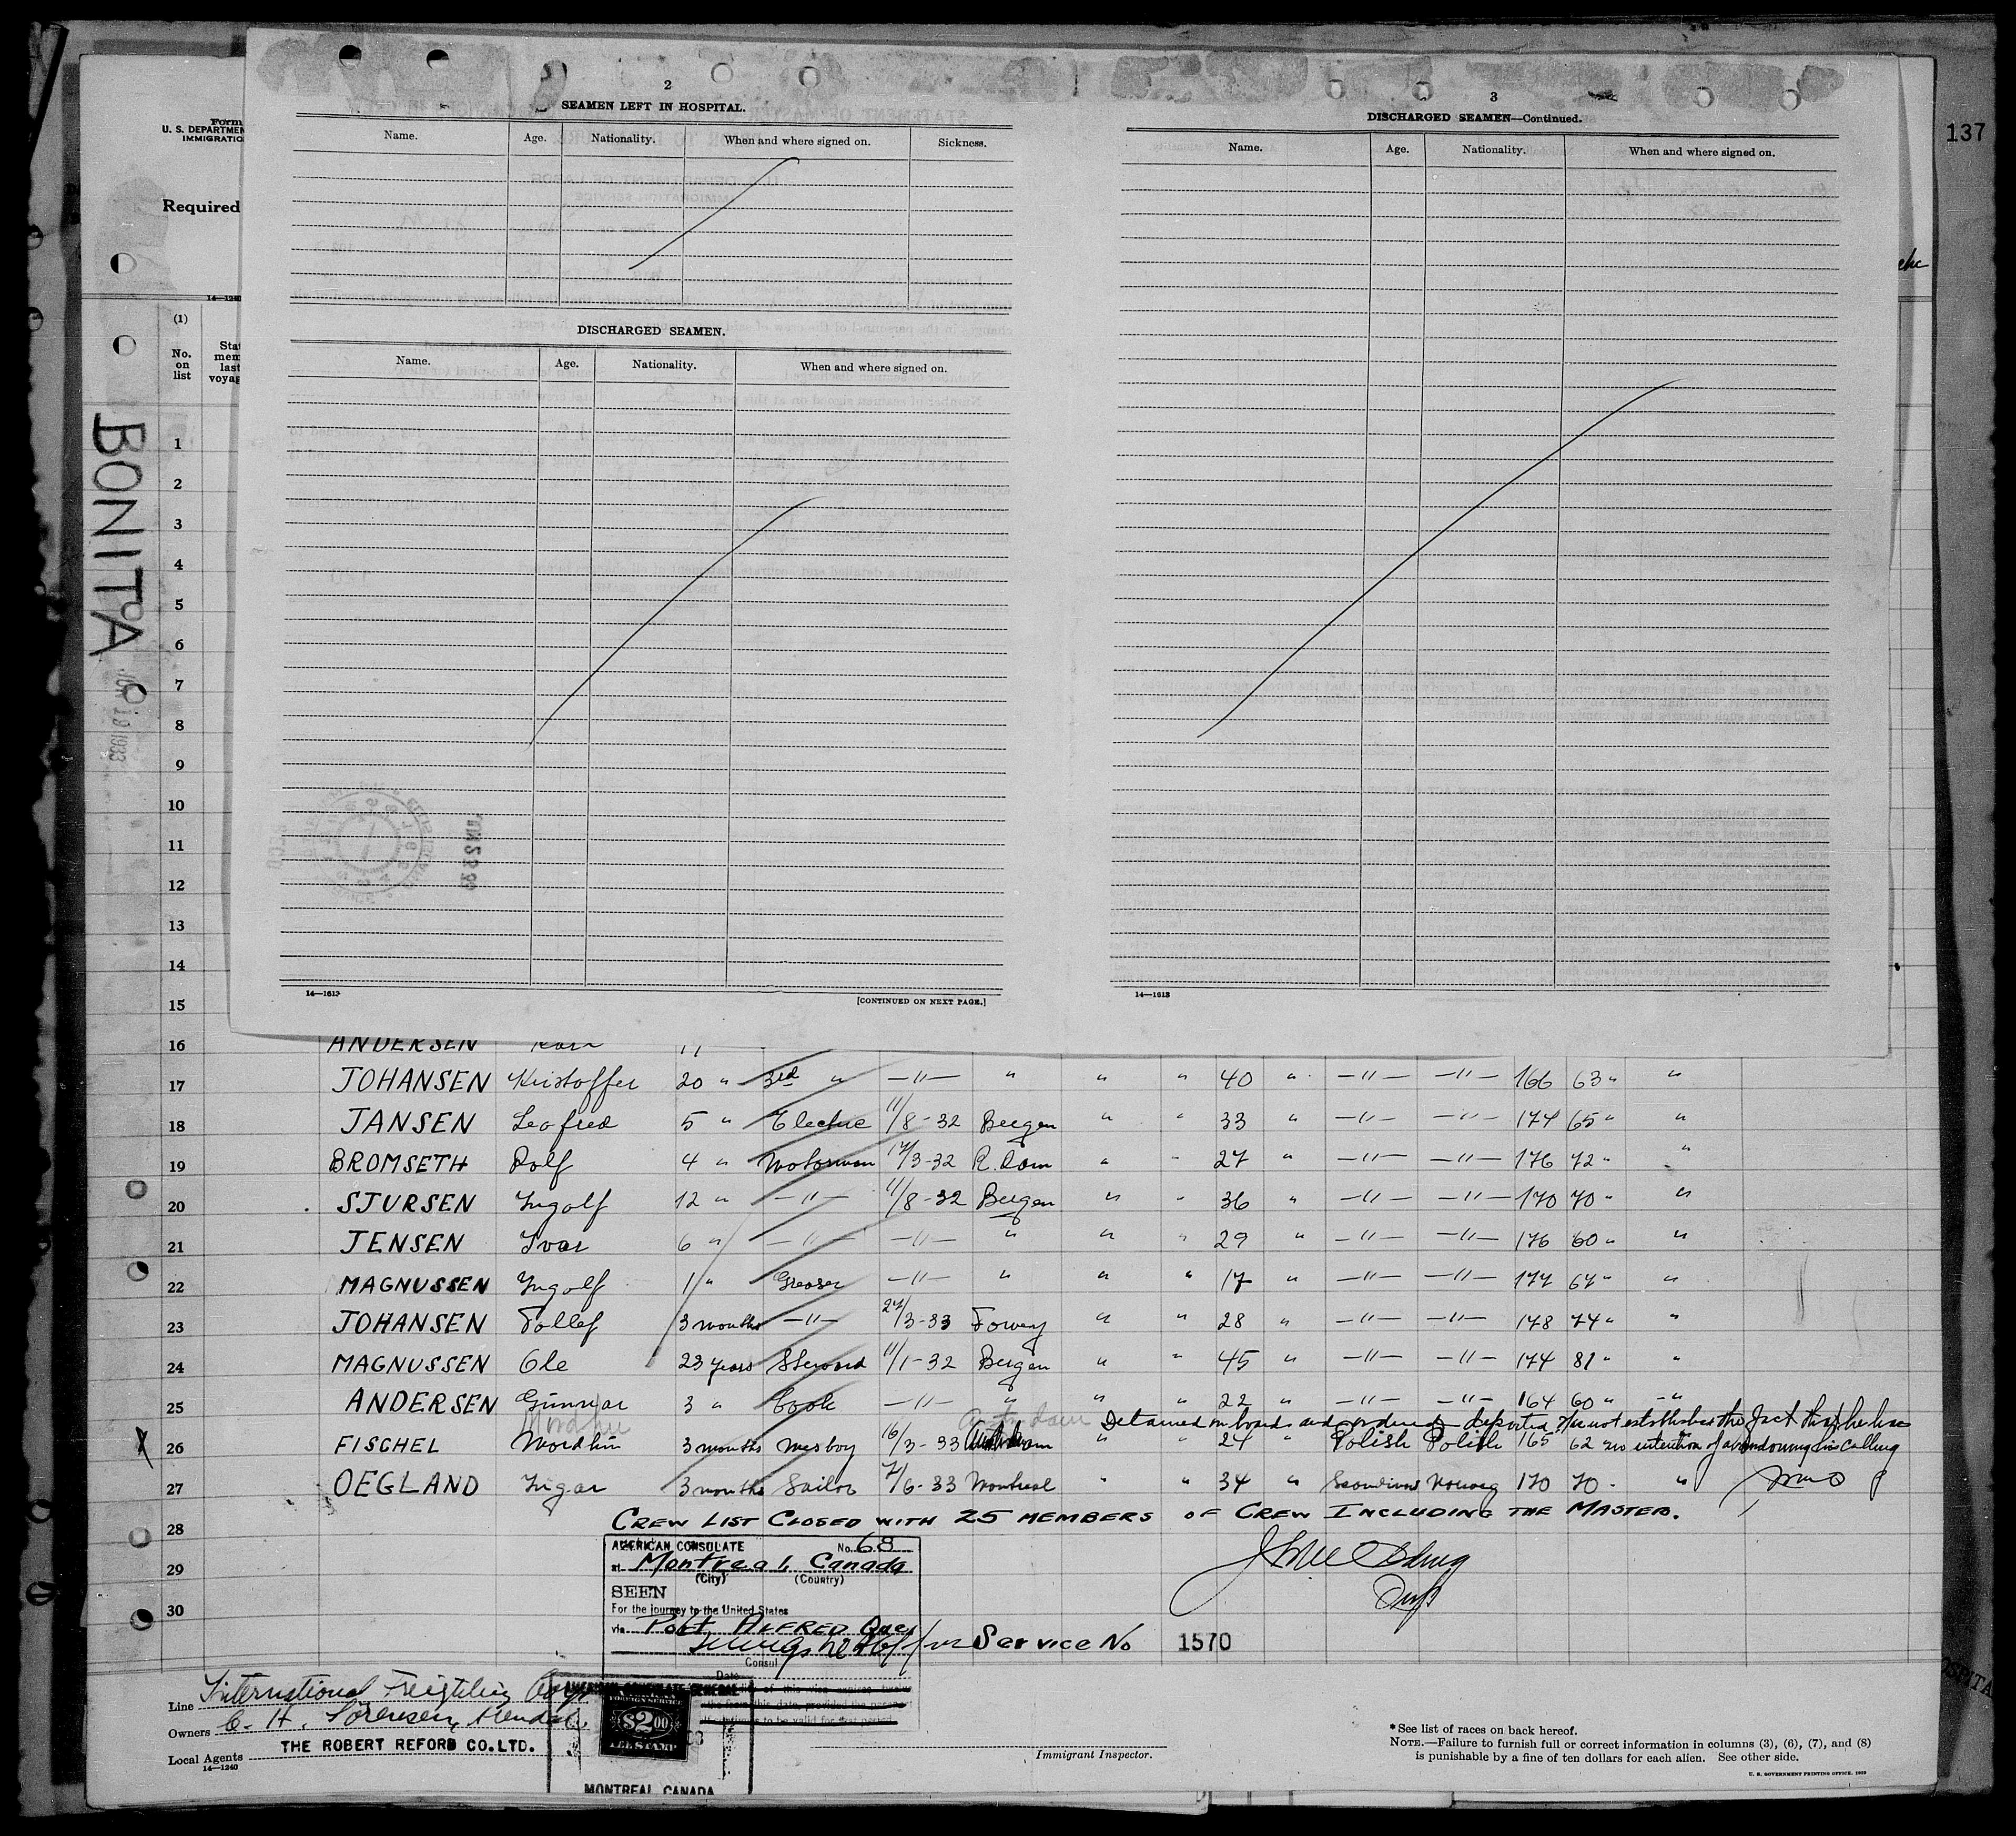 137
Form
U. S. DEPARTMEN
IMMIGRATIO
Required
14—1240
(1)
No. on list
Stat mem last voyag
BONITA
2
SEAMEN LEFT IN HOSPITAL.
Name. Age. Nationality. When and where signed on. Sickness.
DISCHARGED SEAMEN.
Name. Age. Nationality. When and where signed on.
14—1613
[CONTINUED ON NEXT PAGE.]
3
DISCHARGED SEAMEN—Continued.
Name. Age. Nationality. When and where signed on.
14—1613
1
2
3
4
5
6
7
8
9
10
11
12
13
14
15
16 ANDERSEN
17 JOHANSEN Kristoffer 20 " 3rd " —"— " " " 40 " —"— —"— 166 63 " "
18 JANSEN Leofred 5 " Electric 11/8-32 Bergen " " 33 " —"— —"— 174 65 " "
19 BROMSETH Rolf 4 " Motorman 17/3-32 R.dam " " 27 " —"— —"— 176 72 " "
20 SJURSEN Ingolf 12 " —"— 11/8-32 Bergen " " 36 " —"— —"— 170 70 " "
21 JENSEN Ivar 6 " —"— —"— " " " 29 " —"— —"— 176 60 " "
22 MAGNUSSEN Ingolf 1 " Greaser —"— " " " 17 " —"— —"— 177 67 " "
23 JOHANSEN Tollef 3 months —"— 27/3-33 Fowey " " 28 " —"— —"— 178 74 " "
24 MAGNUSSEN Ole 23 years Steward 11/1-32 Bergen " " 45 " —"— —"— 174 81 " "
25 ANDERSEN Gunnar 3 " Cook —"— " " " 22 " —"— —"— 164 60 " "
Detained on board and ordered deported. Has not established the fact that he has
x 26 FISCHEL Mordhin 3 months Mesboy 16/3-33 " " 24 " Polish Polish 165 62 no intention of abandoning his calling
27 OEGLAND Ingar 3 months Sailor 7/6-33 Montreal " " 34 " Scandinav Norweg 170 70 " "
CREW LIST CLOSED WITH 25 MEMBERS OF CREW INCLUDING THE MASTER.
28
29
30
AMERICAN CONSULATE No. 68
at Montreal, Canada
(City) (Country)
SEEN
For the journey to the United States
via Port Alfred Que.
Consul
Date
Service No 1570
Insp
AMERICAN CONSULATE GENERAL
$2.00
FEE STAMP
MONTREAL CANADA
Line International Freighting Corp.
Owners C. H. Sörensen, Arendal.
Local Agents THE ROBERT REFORD CO. LTD.
14—1240
Immigrant Inspector.
* See list of races on back hereof.
NOTE.—Failure to furnish full or correct information in columns (3), (6), (7), and (8)
is punishable by a fine of ten dollars for each alien. See other side.
U. S. GOVERNMENT PRINTING OFFICE. 1929